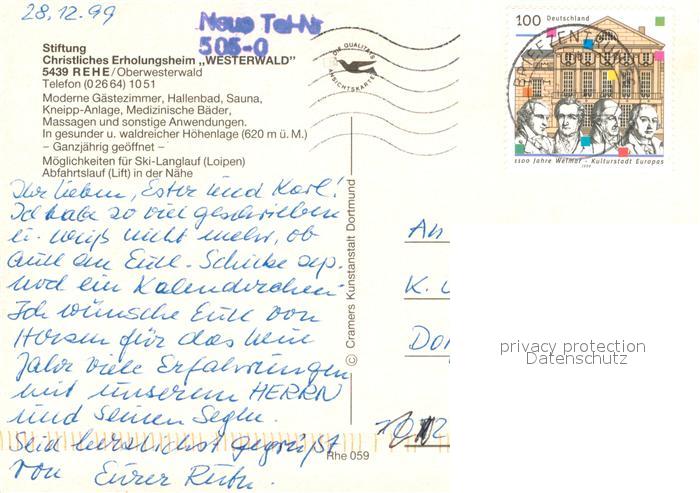 28.12.99
Neue Tel-Nr
505-0
Stiftung
Christliches Erholungsheim „WESTERWALD"
5439 REHE/Oberwesterwald
Telefon (02664) 1051
Moderne Gästezimmer, Hallenbad, Sauna,
Kneipp-Anlage, Medizinische Bäder,
Massagen und sonstige Anwendungen.
In gesunder u. waldreicher Höhenlage (620 m ü. M.)
– Ganzjährig geöffnet –
Möglichkeiten für Ski-Langlauf (Loipen)
Abfahrtslauf (Lift) in der Nähe
Ihr lieben, Ester und Karl!
Ich habe so viel geschrieben
u. weiß nicht mehr, ob
auch an Euch. Schicke sep.
noch ein Kalenderchen.
Ich wünsche Euch von
Herzen für das neue
Jahr viele Erfahrungen
mit unserem HERRN
und seinen Segen.
Seid herzlichst gegrüßt
von Eurer Ruth.
DIE QUALITÄTS
ANSICHTSKARTE
© Cramers Kunstanstalt Dortmund
Rhe 059
100 Deutschland
1100 Jahre Weimar - Kulturstadt Europas
1999
BRIEFZENTRUM
An
K.
Do
privacy protection
Datenschutz